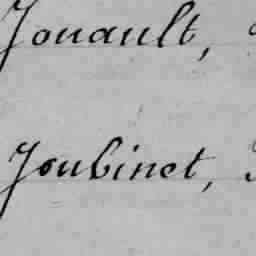 Jouault,
Joubinet,